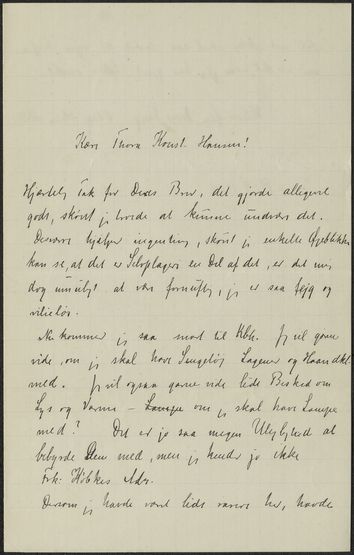 Kære Thora Konst. Hansen!
Hjærtelig Tak for Deres Brev, det gjorde alligevel
godt, skönt jeg troede at kunne undvære det.
Desværre hjælper ingenting, skönt jeg enkelte Öjeblikke
kan se, at det er Selvplageri en Del af det, er det mig
dog umuligt at være fornuftig, jeg er saa fejg og
vilieløs.
Nu kommer jeg saa snart til Kbh. Jeg vil gerne
vide, om jeg skal have Sengetöj Lagener og Haandkl
med. Jeg vil ogsaa gærne vide lidt Besked om
Lys og Varme – Lampe om jeg skal have Lampe
med? Det er jo saa megen Ulejlighed at
bebyrde Dem med, men jeg kender jo ikke
Frk. Adr.
Dersom jeg havde været lidt her, havde